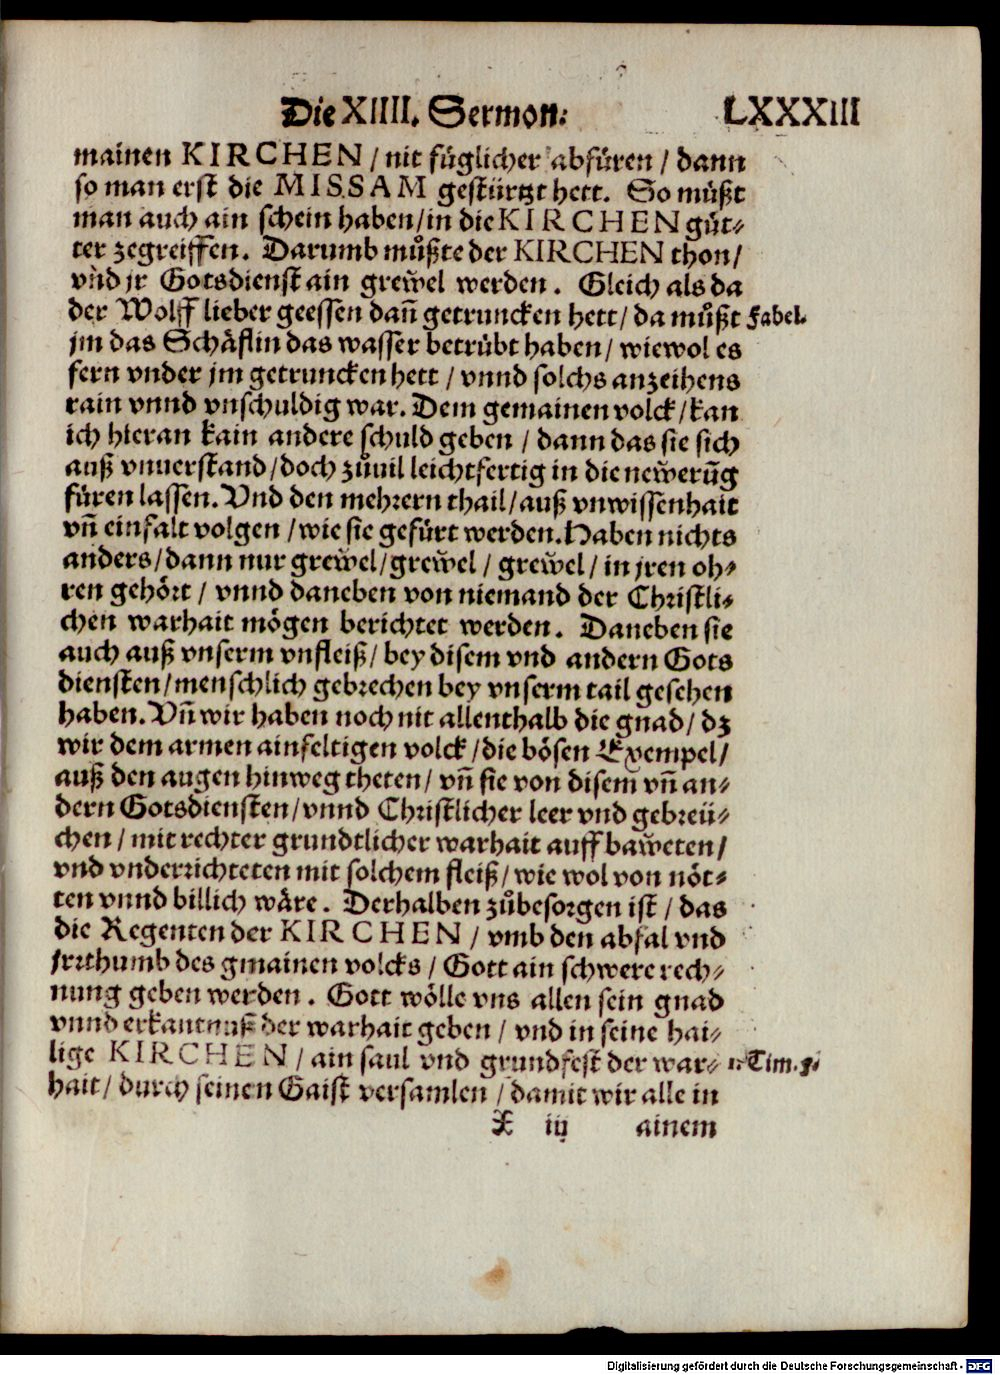 Die XIIII. Sermon: LXXXIII
mainen KIRCHEN / nit füglicher abfüren / dann
so man erst die MISSAM gestürtzt hett. So můßt
man auch ain schein haben / in die KIRCHEN güt⸗
ter zegreiffen. Darumb můßte der KIRCHEN thon /
vnd jr Gotsdienst ain grewel werden. Gleich als da
der Wolff lieber geessen dañ getruncken hett / da můßt Fabel.
jm das Schäflin das wasser betrübt haben / wiewol es
fern vnder jm getruncken hett / vnnd solchs anzeihens
rain vnnd vnschuldig war. Dem gemainen volck / kan
ich hieran kain andere schuld geben / dann das sie sich
auß vnuerstand / doch zůuil leichtfertig in die newerũg
füren lassen. Vnd den mehrern thail / auß vnwissenhait
vñ einfalt volgen / wie sie gefürt werden. Haben nichts
anders / dann nur grewel / grewel / grewel / in jren oh⸗
ren gehört / vnnd daneben von niemand der Christli⸗
chen warhait mögen berichtet werden. Daneben sie
auch auß vnserm vnfleiß / bey disem vnd andern Gots
diensten / menschlich gebrechen bey vnserm tail gesehen
haben. Vñ wir haben noch nit allenthalb die gnad / dz
wir dem armen ainfeltigen volck / die bösen Exempel /
auß den augen hinweg theten / vñ sie von disem vñ an⸗
dern Gotsdiensten / vnnd Christlicher leer vnd gebreü⸗
chen / mit rechter grundtlicher warhait auff baweten /
vnd vnderrichteten mit solchem fleiß / wie wol von nöt⸗
ten vnnd billich wäre. Derhalben zůbesorgen ist / das
die Regenten der KIRCHEN / vmb den abfal vnd
jrrthumb des gmainen volcks / Gott ain schwere rech⸗
nung geben werden. Gott wölle vns allen sein gnad
vnnd erkantnuß der warhait geben / vnd in seine hai⸗
lige KIRCHEN / ain saul vnd grundfest der war⸗ 1. Tim. 3.
hait / durch seinen Gaist versamlen / damit wir alle in
X iij ainem
Digitalisierung gefördert durch die Deutsche Forschungsgemeinschaft - DFG